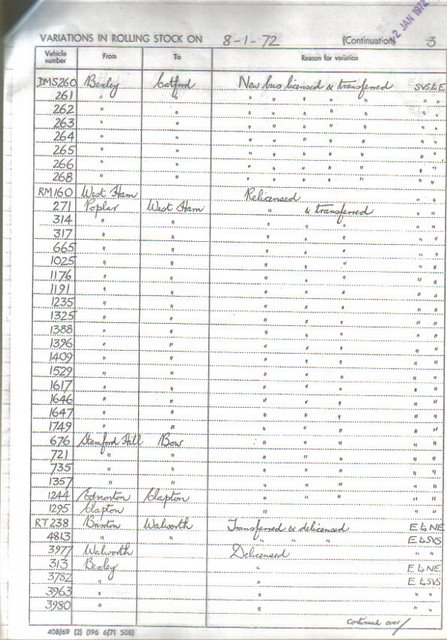 12 JAN 1972
VARIATIONS IN ROLLING STOCK ON 8-1-72 (Continuation) 3
Vehicle number From To Reason for variation
DMS260 Bexley Catford New bus licensed & transferred SVS & E
261 " " " " " " " "
262 " " " " " " " "
263 " " " " " " " "
264 " " " " " " " "
265 " " " " " " " "
266 " " " " " " " "
268 " " " " " " " "
RM160 West Ham Relicensed " "
271 Poplar West Ham " & transferred " "
314 " " " " " " "
317 " " " " " " "
665 " " " " " " "
1025 " " " " " " "
1176 " " " " " " "
1191 " " " " " " "
1235 " " " " " " "
1325 " " " " " " "
1388 " " " " " " "
1396 " " " " " " "
1409 " " " " " " "
1529 " " " " " " "
1617 " " " " " " "
1646 " " " " " " "
1647 " " " " " " "
1749 " " " " " " "
676 Stamford Hill Bow " " " " "
721 " " " " " " "
735 " " " " " " "
1357 " " " " " " "
1244 Edmonton Clapton " " " " "
1295 Clapton " " "
RT238 Barton Walworth Transferred & delicensed E & NE
4813 " " " " " E & SVS
3977 Walworth Delicensed " "
313 Bexley " E & NE
3782 " " E & SVS
3963 " " " "
3980 " " " "
continued over/
408/69 (2) (196 6/71 508)